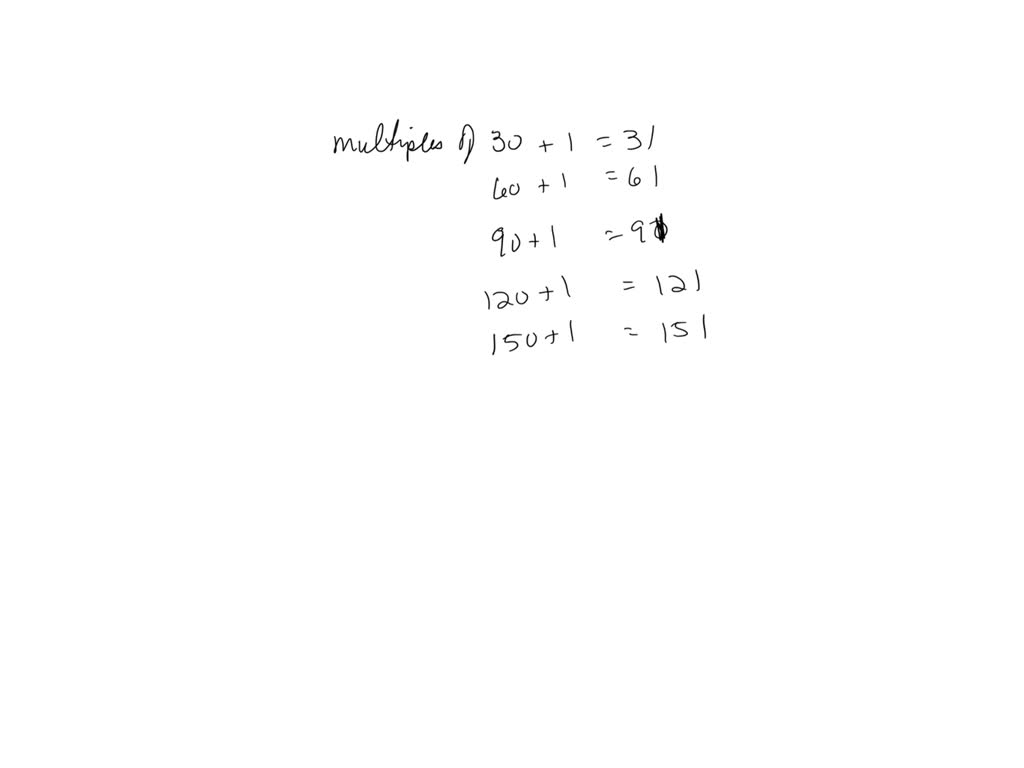 multiples of 30 + 1 = 31
60 + 1 = 61
90 + 1 = 91
120 + 1 = 121
150 + 1 = 151